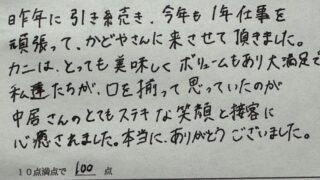 昨年に引き続き、今年も1年仕事を
頑張って、かどやさんに来させて頂きました。
カニは、とっても美味しくボリュームもあり大満足で
私達たちが、口を揃って思っていたのが
中居さんのとてもステキな笑顔と接客に
心癒されました。本当に、ありがとうございました。
10点満点で 100 点